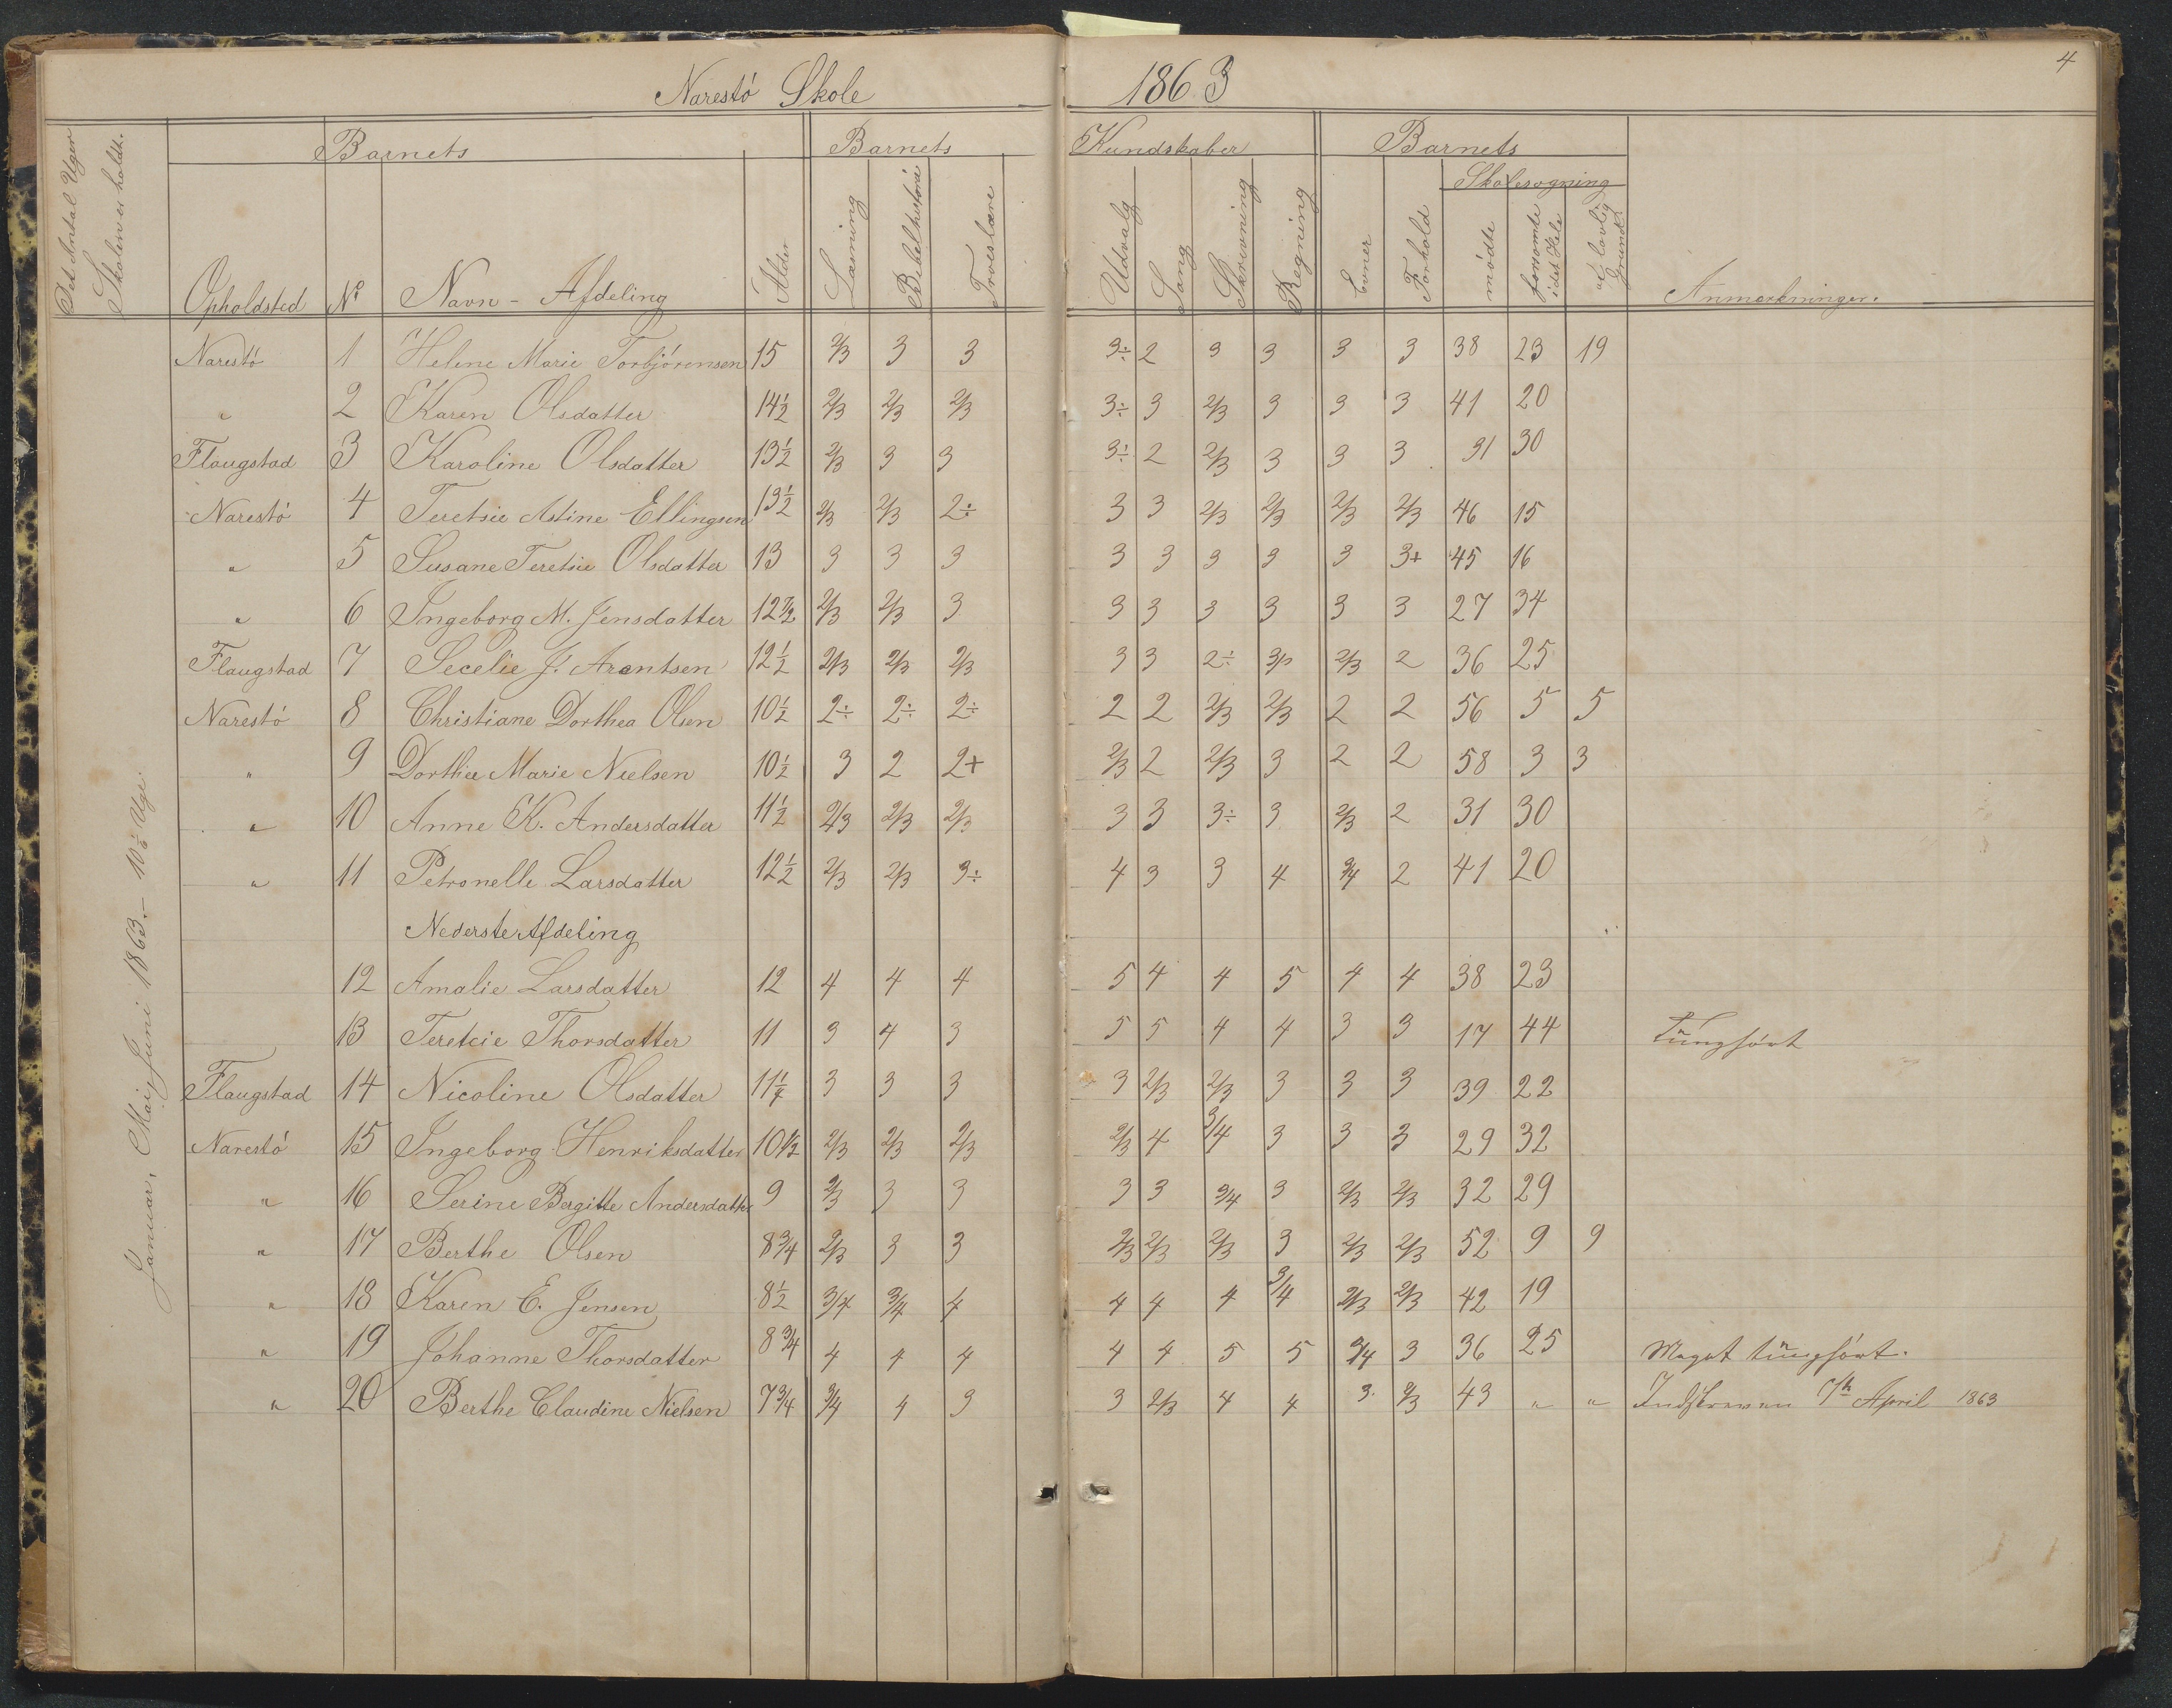 4
Narestö Skole 1863
Det Antal Uger Skolen er holdt.
Barnets Barnets Kundskaber Barnets
Skolesøgning
Opholdsted No Navn - Afdeling Alder Læsning Bibelhistorie Troeslære Udvalg Sang Skrivning Regning Evner Forhold mødte forsømte i det Hele af lovlig Grund Anmærkninger.
Januar, Mai, Juni 1863. - 10 1/6 Uge
Narestö 1 Helene Marie Torbjörensen 15 2/3 3 3 3÷ 2 3 3 3 3 38 23 19
" 2 Karen Olsdatter 14½ 2/3 2/3 2/3 3÷ 3 2/3 3 3 3 41 20
Flaugstad 3 Karoline Olsdatter 13½ 2/3 3 3 3÷ 2 2/3 3 3 3 31 30
Narestö 4 Teretsie Astine Ellingsen 13½ 2/3 2/3 2÷ 3 3 2/3 2/3 2/3 2/3 46 15
" 5 Susane Teretsie Olsdatter 13 3 3 3 3 3 3 3 3 3+ 45 16
" 6 Ingeborg M. Jensdatter 12½ 2/3 2/3 3 3 3 3 3 3 3 27 34
Flaugstad 7 Secelie J. Arentsen 12½ 2/3 2/3 2/3 3 3 2÷ 2/3 2 36 25
Narestö 8 Christiane Dorthea Olsen 10½ 2÷ 2÷ 2÷ 2 2 2/3 2/3 2 2 56 5 5
" 9 Dorthie Marie Nielsen 10½ 3 2 2+ 2/3 2 2/3 3 2 2 58 3 3
" 10 Anne K. Andersdatter 11½ 2/3 2/3 2/3 3 3 3÷ 3 2/3 2 31 30
" 11 Petronelle Larsdatter 12½ 2/3 2/3 3÷ 4 3 3 4 3/4 2 41 20
Nederste Afdeling
12 Amalie Larsdatter 12 4 4 4 5 4 4 5 4 4 38 23
13 Teretcie Thorsdatter 11 3 4 3 5 5 4 4 3 3 17 44 Tungført
Flaugstad 14 Nicoline Olsdatter 11¼ 3 3 3 3 2/3 2/3 3 3 3 39 22
Narestö 15 Ingeborg Henriksdatter 10½ 2/3 2/3 2/3 2/3 4 3/4 3 3 3 29 32
" 16 Serine Bergitte Andersdatter 9 2/3 3 3 3 3 3/4 3 2/3 2/3 32 29
" 17 Berthe Olsen 8¾ 2/3 3 3 2/3 2/3 2/3 3 2/3 2/3 52 9 9
" 18 Karen E. Jensen 8½ 3/4 3/4 4 4 4 4 3/4 2/3 2/3 42 19
" 19 Johanne Thorsdatter 8¾ 4 4 4 4 4 5 5 3/4 3 36 25 Meget tungført.
" 20 Berthe Claudine Nielsen 7¾ 3/4 4 3 3 2/3 4 4 3. 2/3 43 " " Indskreven April 1863